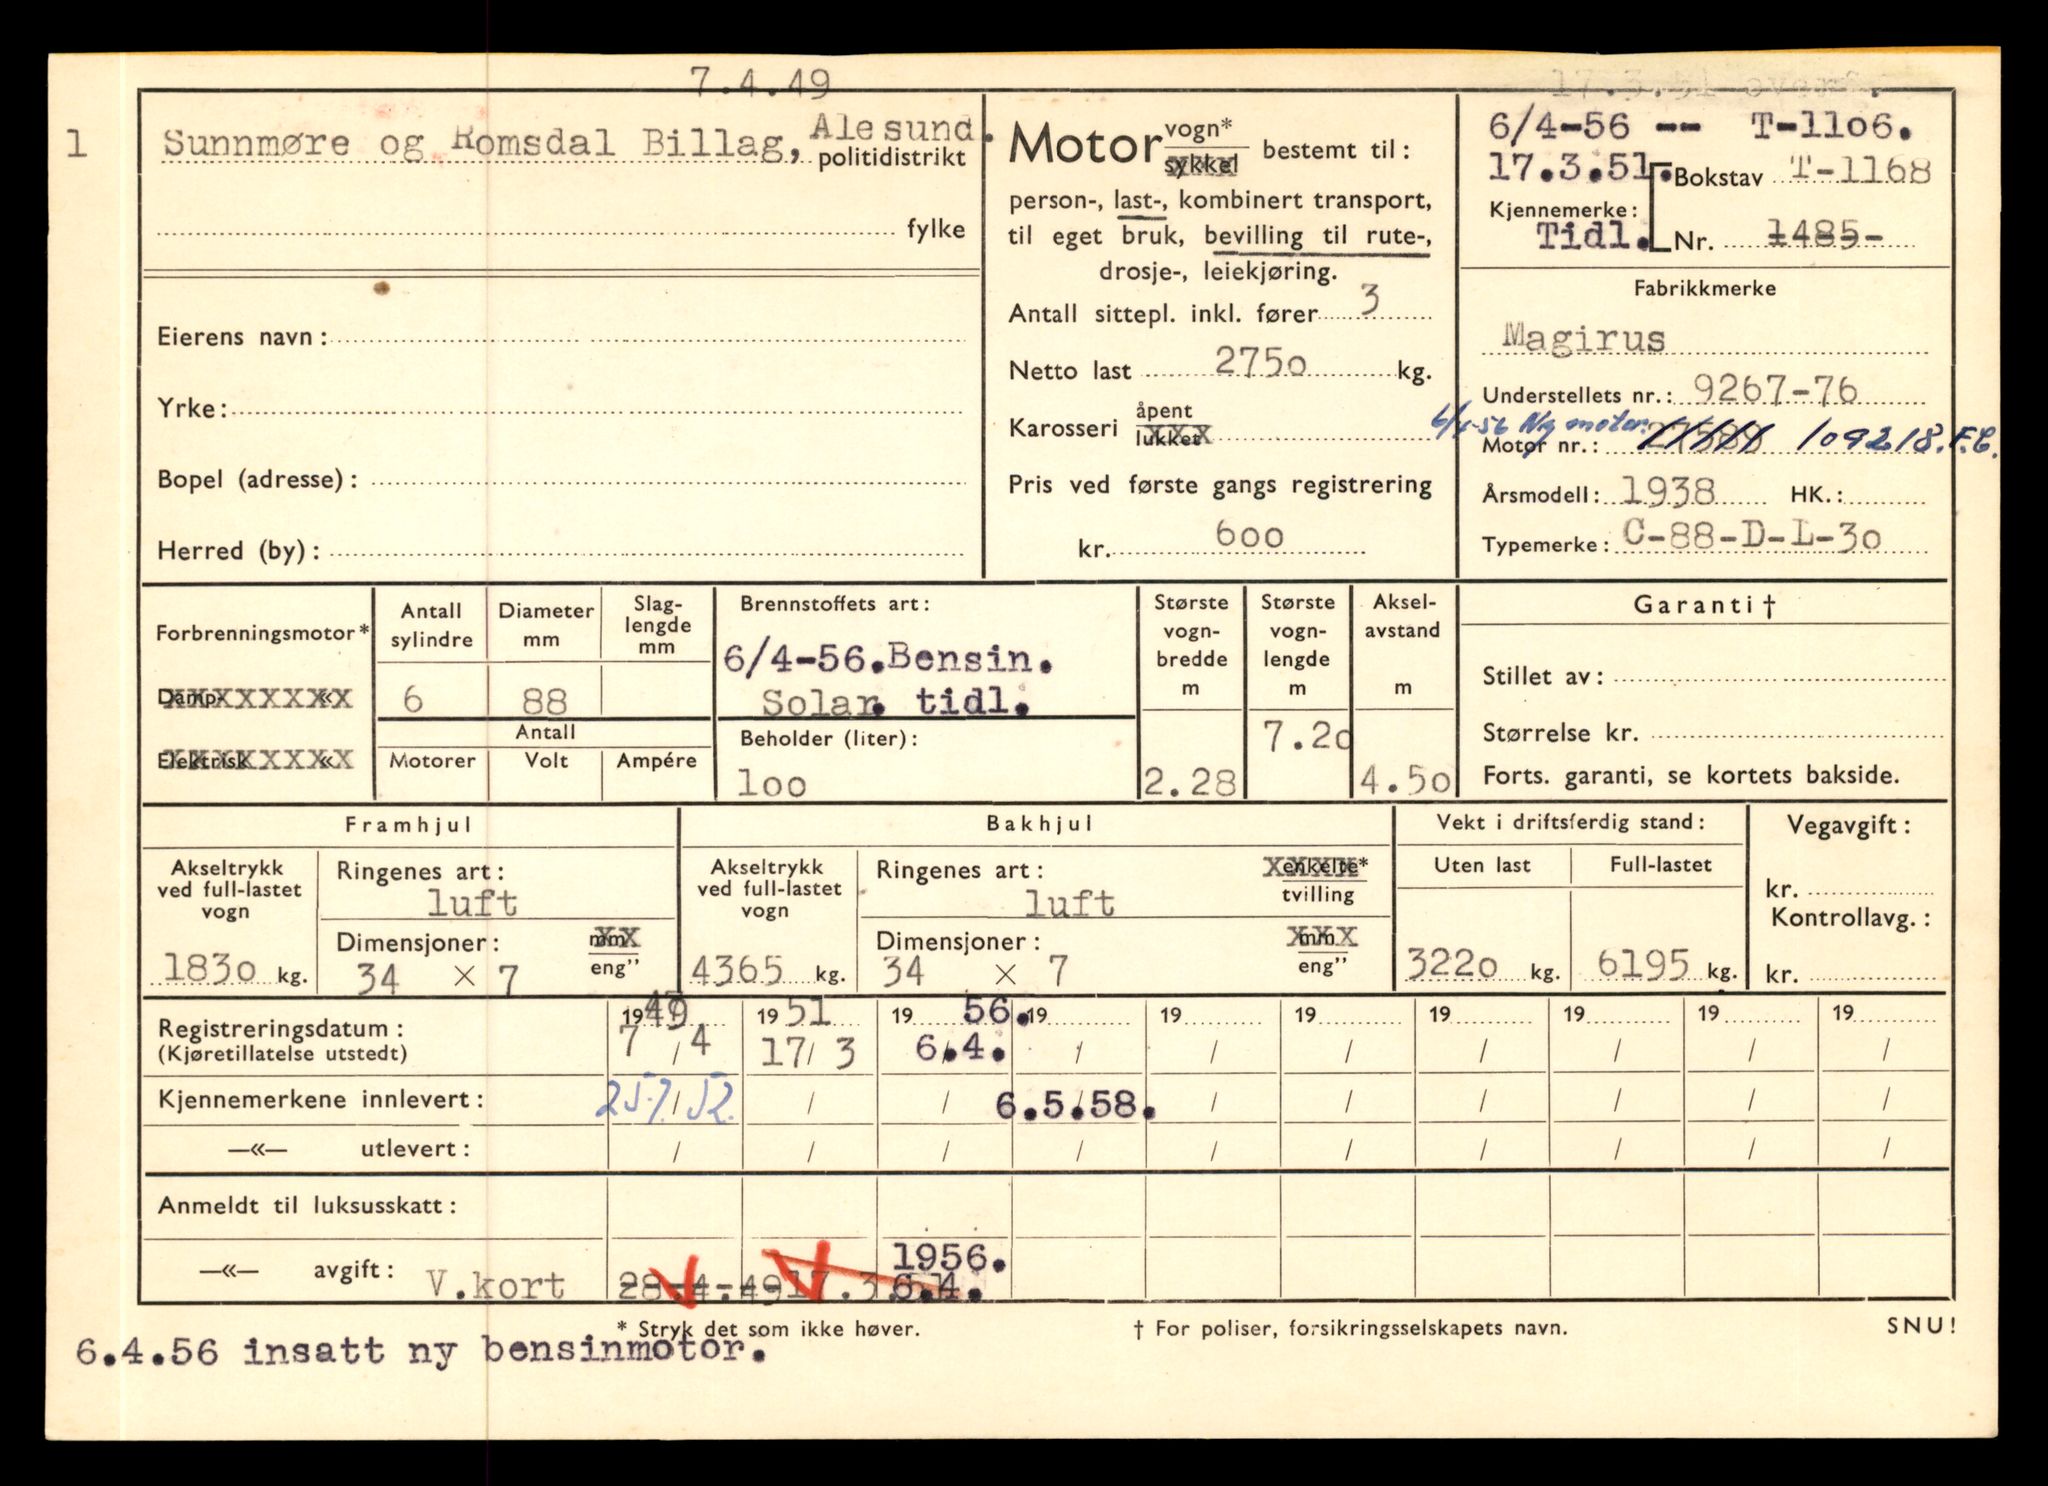 7.4.49
17.3.51 overf.
1
Sunnmøre og Romsdal Billag, Alesund.
politidistrikt
fylke
Eierens navn:
Yrke:
Bopel (adresse):
Herred (by):
Motor vogn*
sykkel
bestemt til:
person-, last-, kombinert transport,
til eget bruk, bevilling til rute-,
drosje-, leiekjøring.
Antall sittepl. inkl. fører 3
Netto last 2750 kg.
Karosseri åpent
lukket
Pris ved første gangs registrering
kr. 600
6/4-56 -- T-1106.
17.3.51. Bokstav T-1168
Kjennemerke:
Tidl. Nr. 1485-
Fabrikkmerke
Magirus
Understellets nr.: 9267-76
6/4-56 Ny motor.
Motor nr.: 109218.F.C.
Årsmodell: 1938 HK.:
Typemerke: C-88-D-L-30
Forbrenningsmotor*
Damp- «
Elektrisk «
Antall sylindre
6
Diameter mm
88
Slag-
lengde
mm
Antall
Motorer Volt Ampére
Brennstoffets art:
6/4-56. Bensin.
Solar. tidl.
Beholder (liter):
100
Største
vogn-
bredde
m
2.28
Største
vogn-
lengde
m
7.20
Aksel-
avstand
m
4.50
Garanti †
Stillet av:
Størrelse kr.
Forts. garanti, se kortets bakside.
Framhjul
Akseltrykk
ved full-lastet
vogn
1830 kg.
Ringenes art:
luft
Dimensjoner: mm
34 × 7 eng"
Bakhjul
Akseltrykk
ved full-lastet
vogn
4365 kg.
Ringenes art: enkelte*
luft tvilling
Dimensjoner: mm
34 × 7 eng"
Vekt i driftsferdig stand:
Uten last Full-lastet
3220 kg. 6195 kg.
Vegavgift:
kr.
Kontrollavg.:
kr.
Registreringsdatum: 1949 1951 19 56. 19 19 19 19 19 19 19
(Kjøretillatelse utstedt) 7 / 4 17 / 3 6.4. / / / / / / /
Kjennemerkene innlevert: 25.7. 52. / / 6.5.58. / / / / / /
—«— utlevert: / / / / / / / / / /
Anmeldt til luksusskatt:
—«— avgift: V.kort 28.4.49 17.3 1956.
6.4.
* Stryk det som ikke høver.
† For poliser, forsikringsselskapets navn.
SNU!
6.4.56 insatt ny bensinmotor.